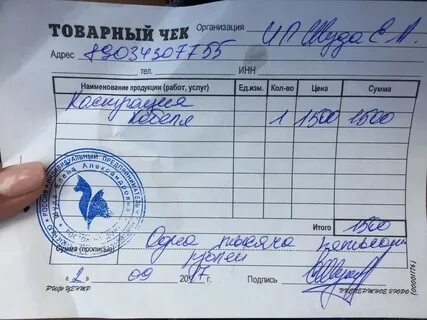 ТОВАРНЫЙ ЧЕК Организация ИП Шуда Е.А.
Адрес 89034307755
тел. ИНН
Наименование продукции (работ, услуг) Ед.изм. Кол-во Цена Сумма
Кастрация
кобеля 1 1500 1500
Итого 1500
Одна тысяча пятьсот
Сумма (прописью) рублей
«2» 09 2017г. Подпись
РИФЦЕНТР ЭКСПЕРТНОЕ БЮРО (00001176)
ИНДИВИДУАЛЬНЫЙ ПРЕДПРИНИМАТЕЛЬ
Елена Александровна